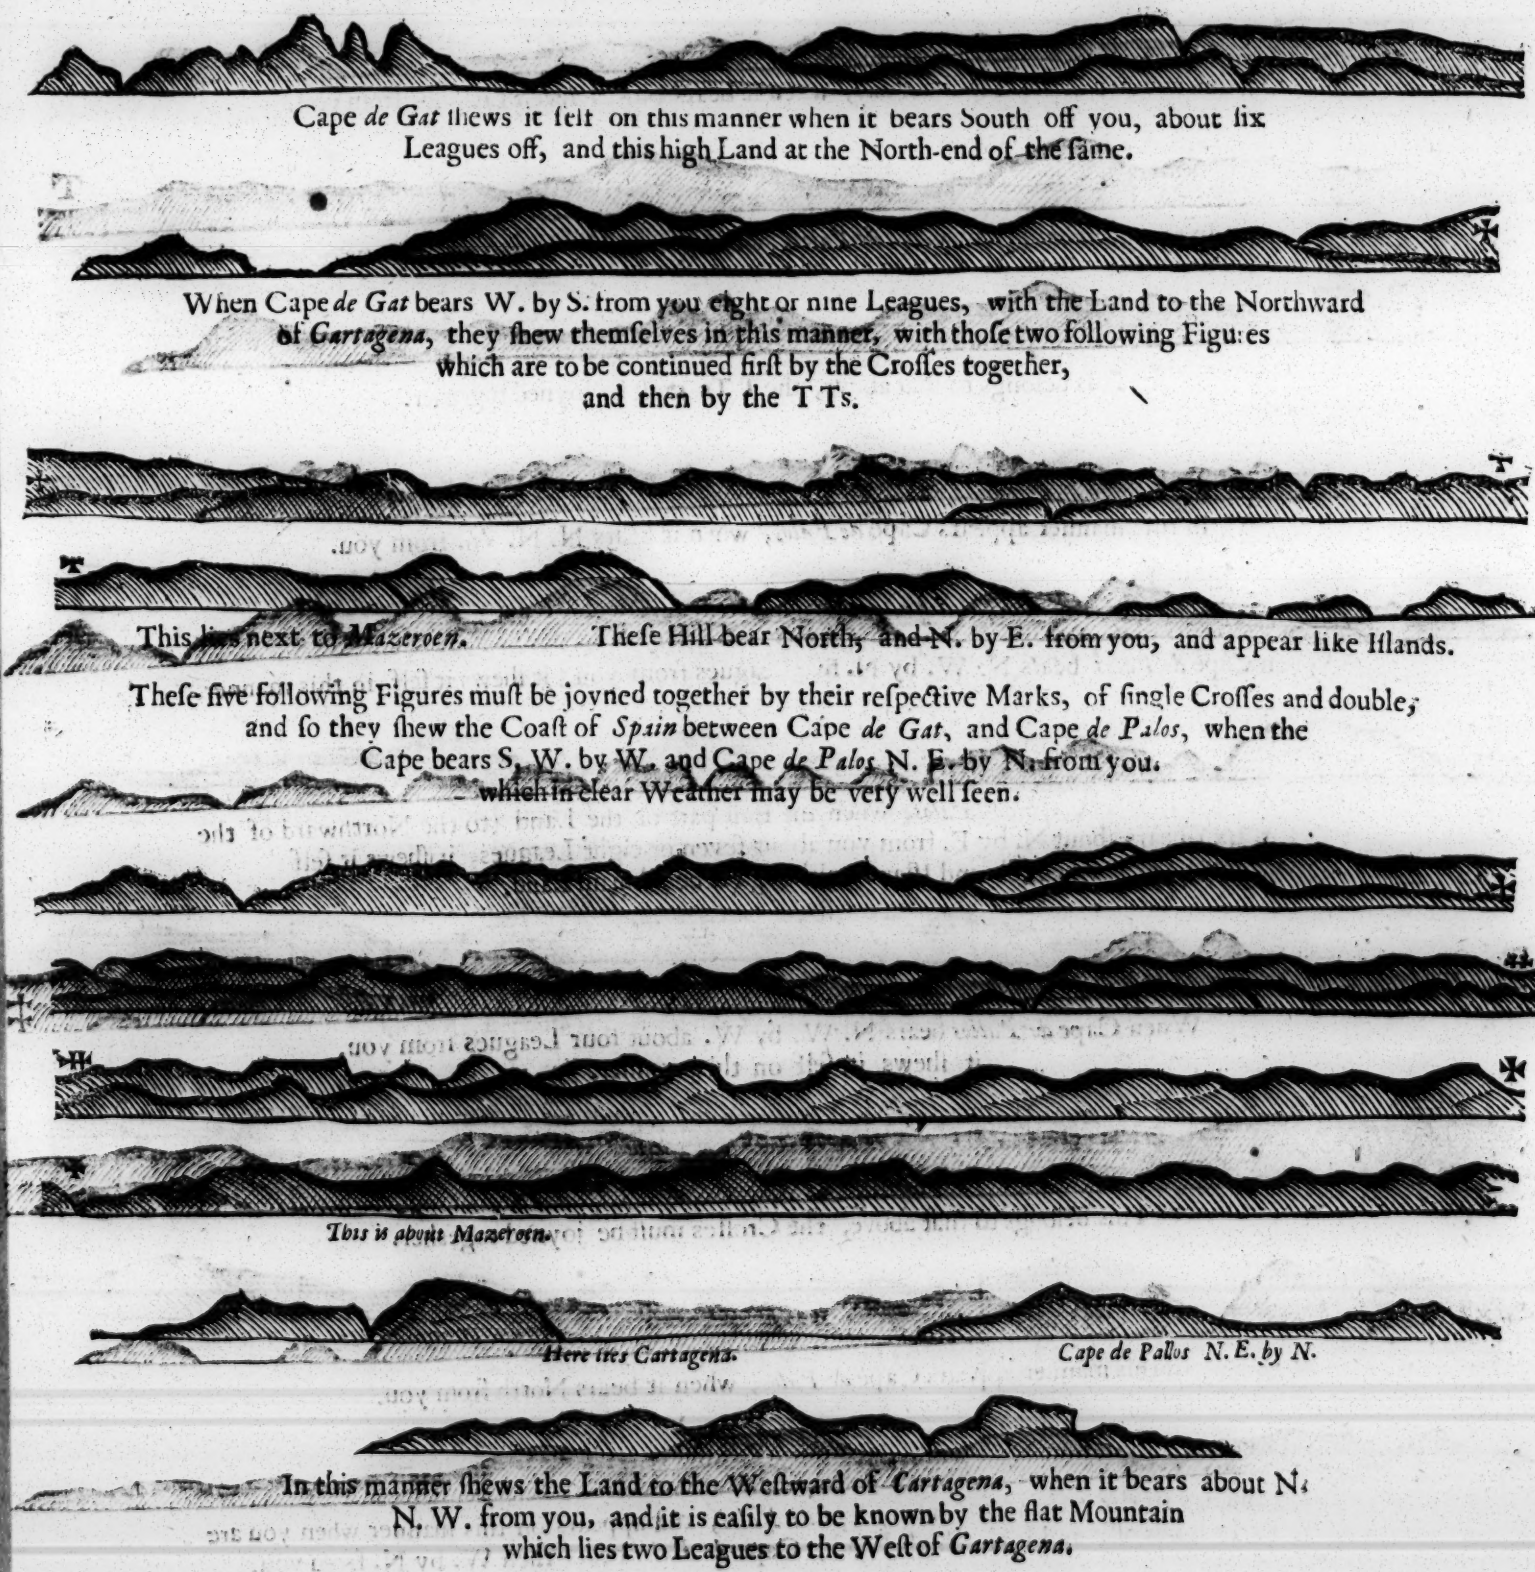 Cape de Gat ſhews it ſelf on this manner when it bears South off you, about ſix
Leagues off, and this high Land at the North-end of the ſame.
When Cape de Gat bears W. by S. from you eight or nine Leagues, with the Land to the Northward
of Cartagena, they ſhew themſelves in this manner, with thoſe two following Figures
which are to be continued firſt by the Croſſes together,
and then by the T Ts.
This lies next to Mazeroen. Theſe Hill bear North, and N. by E. from you, and appear like Iſlands.
Theſe five following Figures muſt be joyned together by their reſpective Marks, of ſingle Croſſes and double;
and ſo they ſhew the Coaſt of Spain between Cape de Gat, and Cape de Palos, when the
Cape bears S. W. by W. and Cape de Palos N. E. by N. from you.
which in clear Weather may be very well ſeen.
This is about Mazeroen.
Here lies Cartagena. Cape de Pallos N. E. by N.
In this manner ſhews the Land to the Weſtward of Cartagena, when it bears about N.
N. W. from you, and it is eaſily to be known by the flat Mountain
which lies two Leagues to the Weſt of Cartagena.